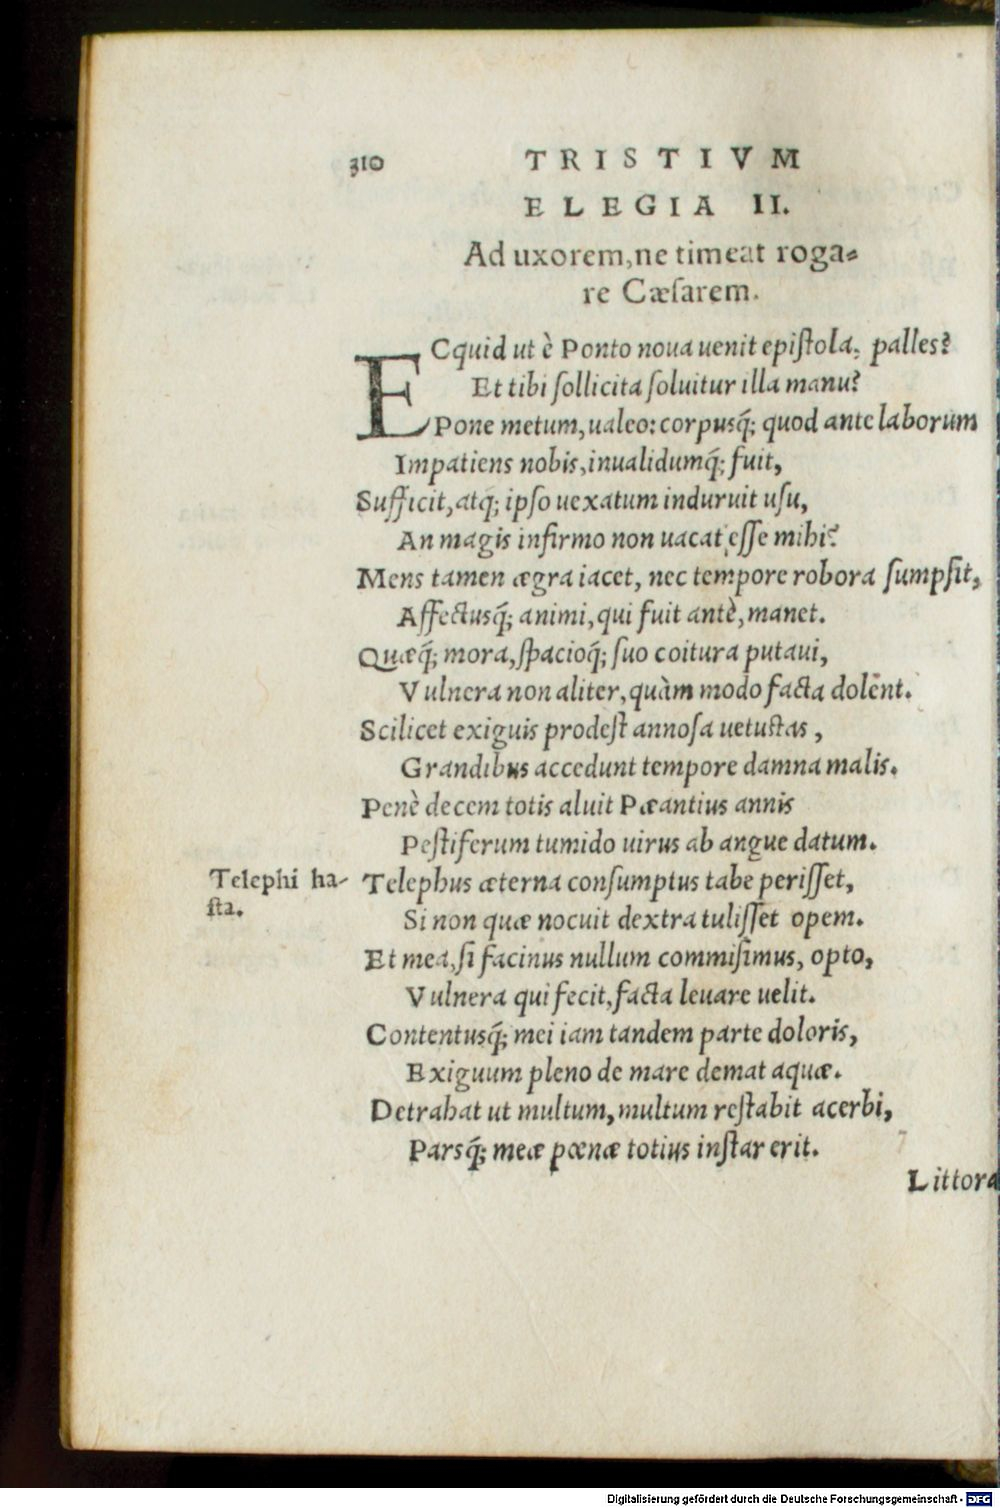 310 TRISTIVM
ELEGIA II.
Ad uxorem, ne timeat roga⸗
re Cæſarem.
ECquid ut è Ponto noua uenit epiſtola, palles?
Et tibi ſollicita ſoluitur illa manu?
Pone metum, ualeo: corpusq́; quod ante laborum
Impatiens nobis, inualidumq́; fuit,
Sufficit, atq; ipſo uexatum induruit uſu,
An magis infirmo non uacat eſſe mihi?
Mens tamen ægra iacet, nec tempore robora ſumpſit,
Affectusq́; animi, qui fuit antè, manet.
Quæq́; mora, ſpacioq́; ſuo coitura putaui,
Vulnera non aliter, quàm modo facta dolent.
Scilicet exiguis prodeſt annoſa uetuſtas,
Grandibus accedunt tempore damna malis.
Penè decem totis aluit Pæantius annis
Peſtiferum tumido uirus ab angue datum.
Telephi ha-
ſta.
Telephus æterna conſumptus tabe periſſet,
Si non quæ nocuit dextra tuliſſet opem.
Et mea, ſi facinus nullum commiſimus, opto,
Vulnera qui fecit, facta leuare uelit.
Contentusq́; mei iam tandem parte doloris,
Exiguum pleno de mare demat aquæ.
Detrahat ut multum, multum reſtabit acerbi,
Parsq́; meæ pœnæ totius inſtar erit.
Littora
Digitalisierung gefördert durch die Deutsche Forschungsgemeinschaft - DFG